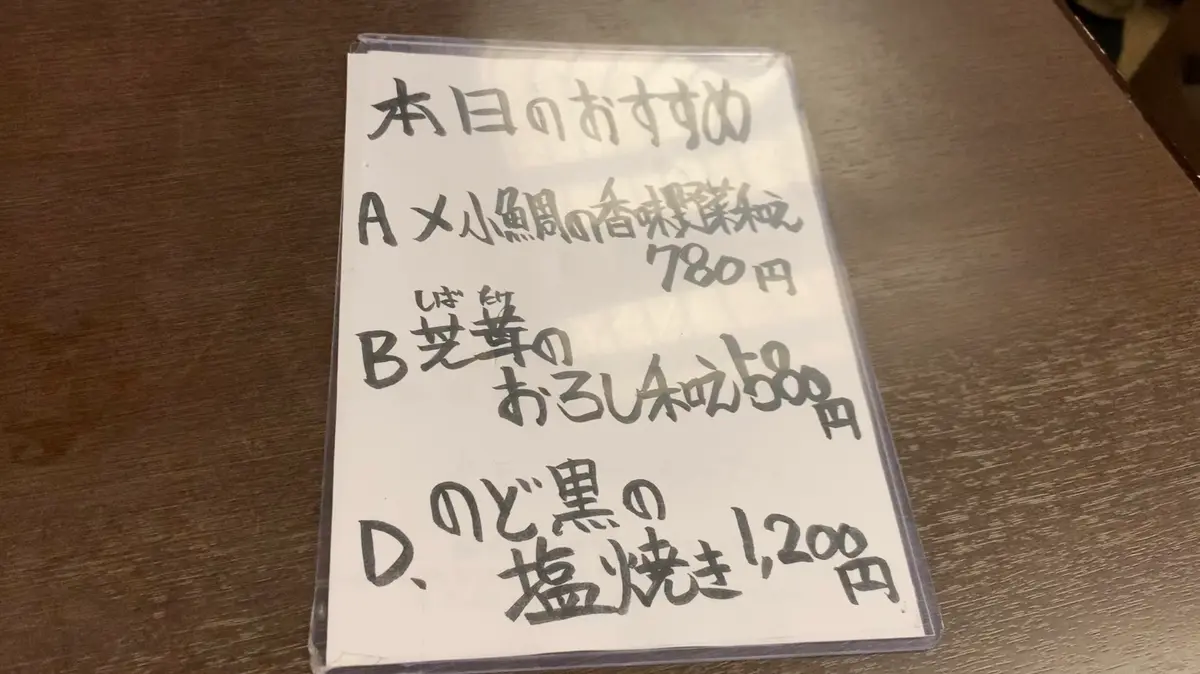 本日のおすすめ
A 〆小鯛の香味野菜和え
780円
しば たけ
B 芝茸の
おろし和え 580円
D、のど黒の
塩焼き 1,200円